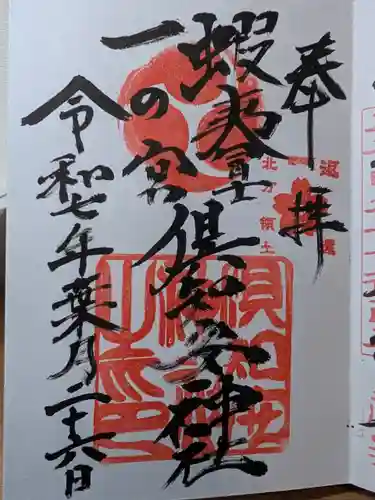 奉拝
返還
北方領土
蝦夷富士
倶知安神社
一の宮
令和七年葉月二十六日